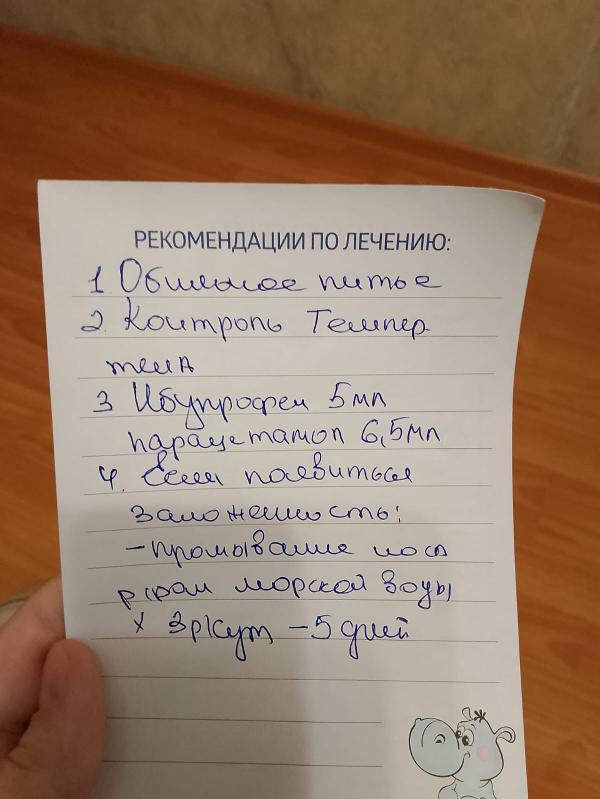 РЕКОМЕНДАЦИИ ПО ЛЕЧЕНИЮ:
1 Обильное питье
2. Контроль Темпер
тела
3 Ибупрофен 5мл
парацетамол 6,5мл
4. Если появиться
заложенность:
– промывание носа
р|ром морской воды
х 3р|сут – 5 дней